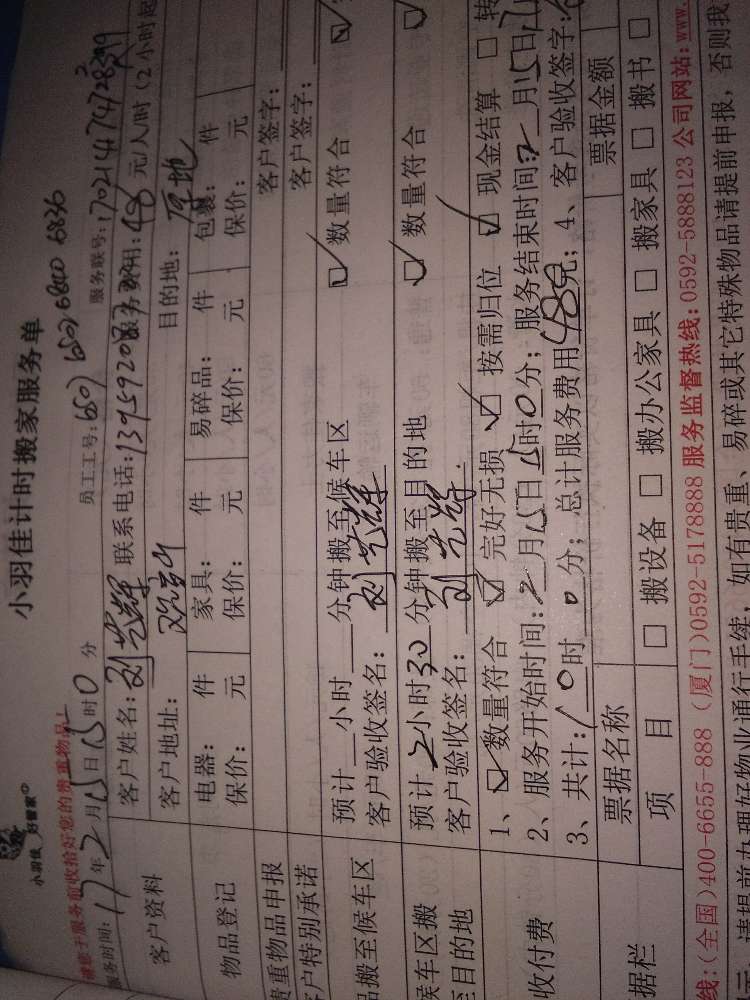 小羽佳 好管家
小羽佳计时搬家服务单
请您于服务前收拾好您的贵重物品！
服务时间：17年2月15日15时0分 员工工号：6507 6502 6800 6836 服务联号：
客户资料
客户姓名：刘艺辉 联系电话： 服务费用：48元/人/时（2小时起
客户地址： 目的地：原地
物品登记
电器： 件 家具： 件 易碎品： 件 包裹： 件
保价： 元 保价： 元 保价： 元 保价： 元
贵重物品申报 客户签字：
客户特别承诺 客户签字：
品搬至候车区
预计 小时 分钟搬至候车区 ☑数量符合
客户验收签名：刘艺辉
候车区搬
至目的地
预计2小时30分钟搬至目的地 ☑数量符合
客户验收签名：刘艺辉
收付费
1、☑数量符合 ☑完好无损 ☑按需归位 ☑现金结算 □转
2、服务开始时间：2月15日15时0分；服务结束时间：2月15日
3、共计： 时0分；总计服务费用488元；4、客户验收签字：
据栏
票据名称 票据金额
项 目 □搬设备 □搬办公家具 □搬家具 □搬书 □
线：(全国)400-6655-888 (厦门)0592-5178888 服务监督热线：0592-5888123 公司网站：www.
请提前办理好物业通行手续，如有贵重、易碎或其它特殊物品请提前申报，否则我